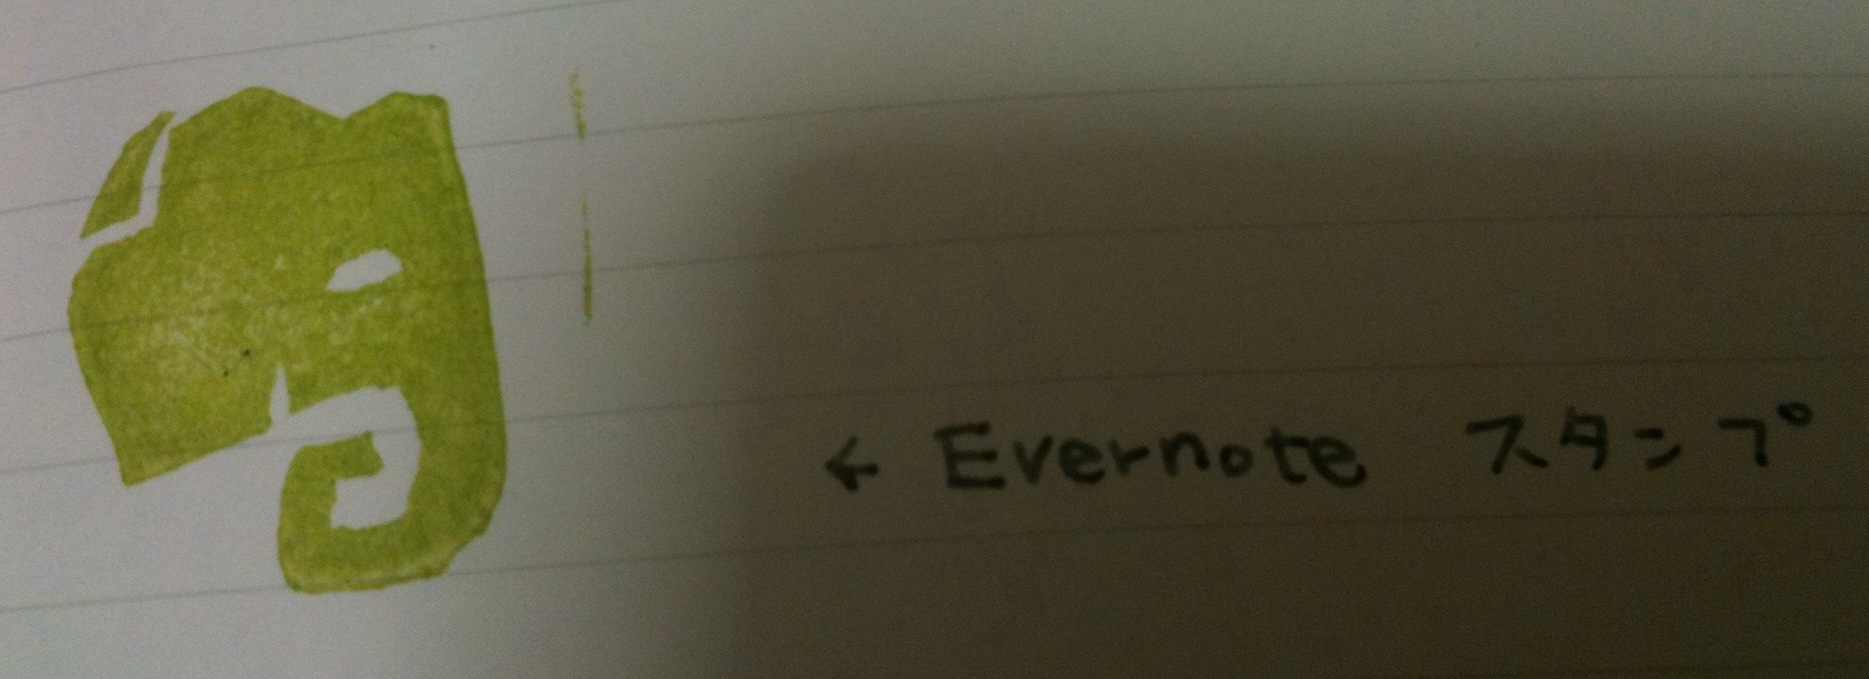 ← Evernote スタンプ